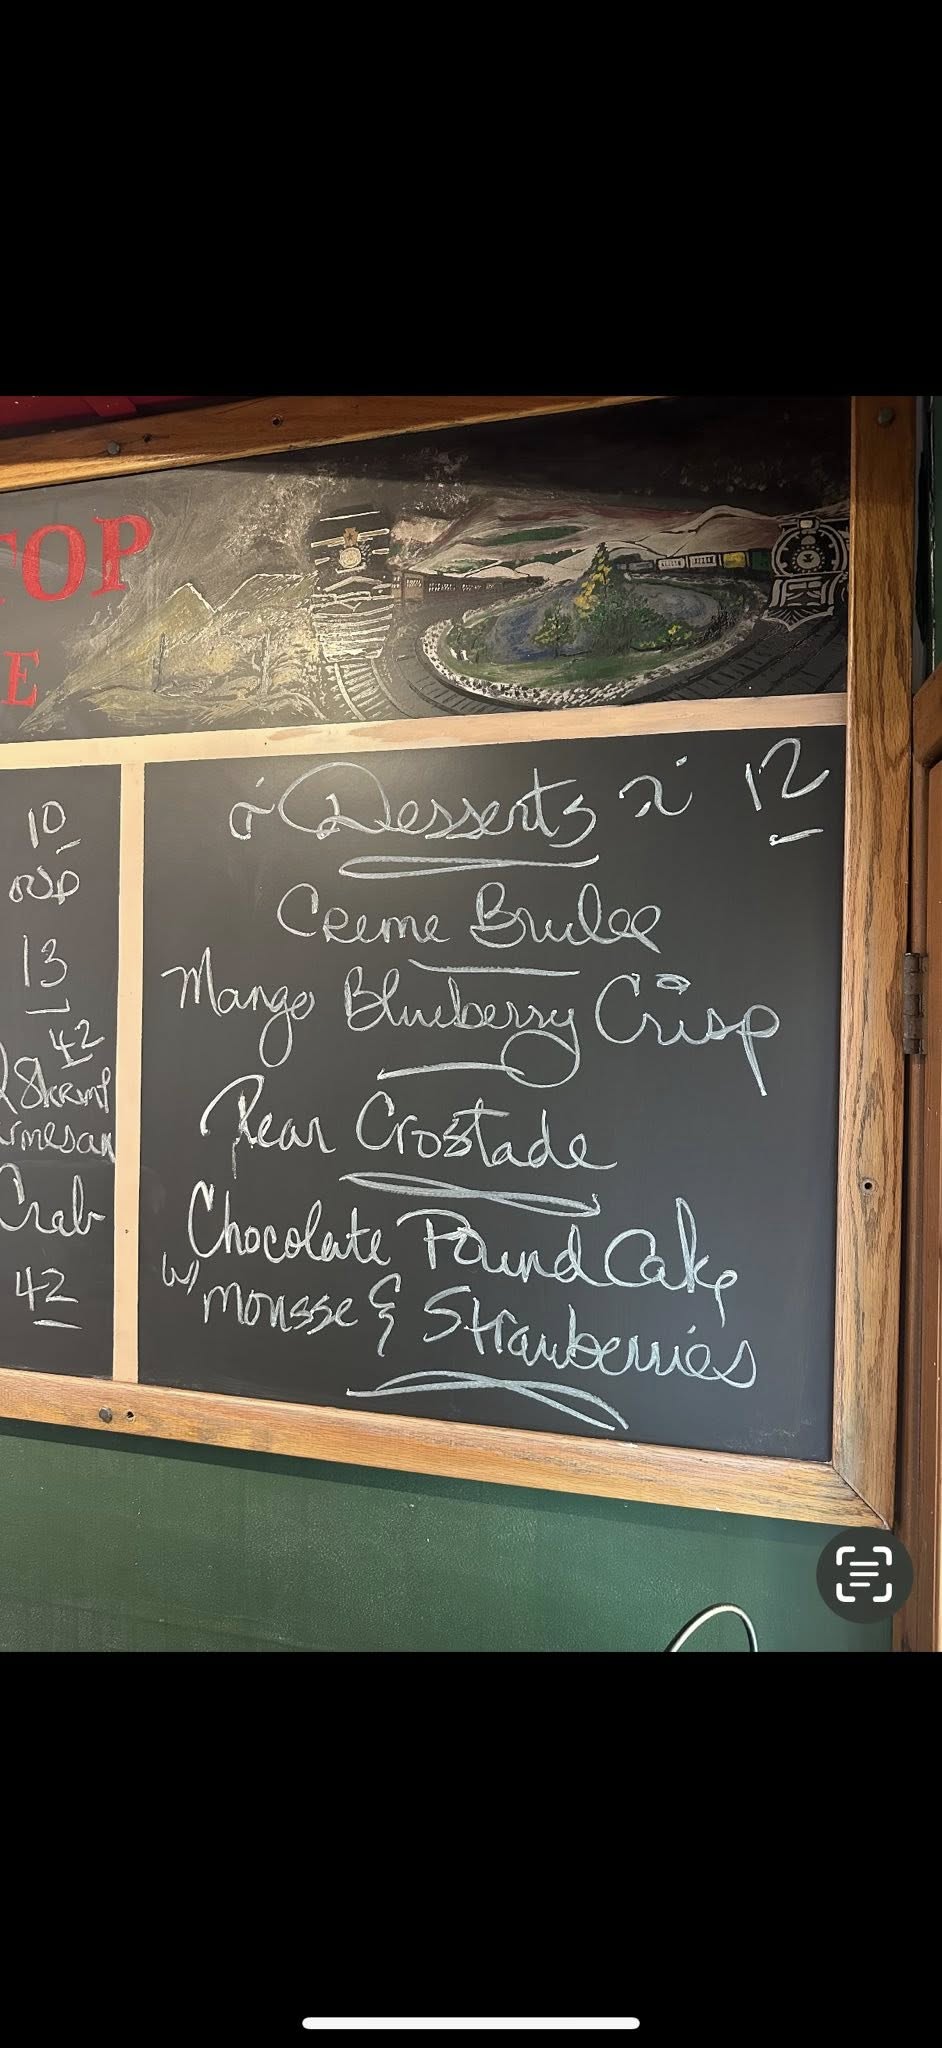 TOP
E
10
oup
13
42
Shrimp
rmesan
Crab
42
Desserts 12
Creme Brulee
Mango Blueberry Crisp
Pear Crostade
Chocolate Pound Cake
w/ mousse & Strawberries